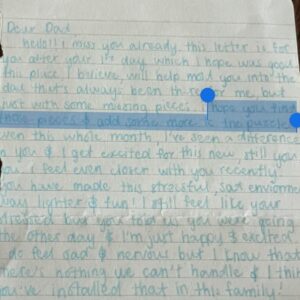 Dear Dad,
hello!! I miss you already, this letter is for
you after your 1st day which I hope was good
this place, I believe, will help mold you into the
dad that's always been there for me, but
just with some missing pieces. I hope you find
those pieces & add some more to the puzzle
even this whole month, I've seen a difference
in you & I get excited for this new still your
I feel even closer with you recently
you have made this stressful, sad
way lighter & fun! I still feel like your
but you told us you were going
the other day & I'm just happy & excited
do feel sad & nervous but I know that
there's nothing we can't handle & I think
you've installed that in this family!